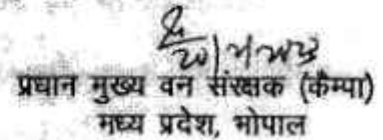 प्रधान मुख्य वन संरक्षक (कैम्पा)
मध्य प्रदेश, भोपाल